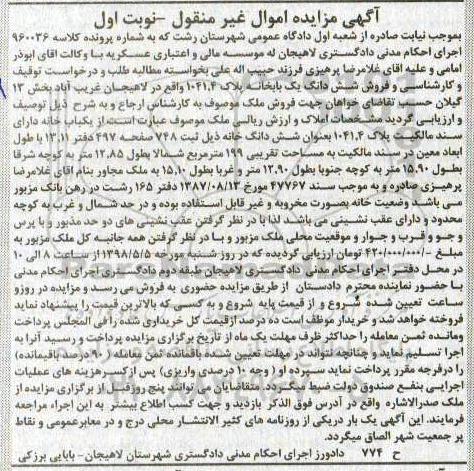 آگهی مزایده اموال غیر منقول -نوبت اول
بموجب نیابت صادره از شعبه اول دادگاه عمومی شهرستان رشت که به شماره پرونده کلاسه ۹۶۰۰۳۶
اجرای احکام مدنی دادگستری لاهیجان له موسسه مالی و اعتباری عسکریه با وکالت اقای ابوذر
امامی و علیه اقای غلامرضا پرهیزی فرزند حبیب اله علی بخواسته مطالبه طلب و درخواست توقیف
و کارشناسی و فروش شش دانگ یک بابخانه پلاک ۱۰۴۱٫۴ واقع در لاهیجان غریب آباد بخش ۱۳
گیلان حسب تقاضای خواهان جهت فروش ملک موصوف به کارشناس ارجاع و به شرح ذیل توصیف
و ارزیابی گردید مشخصات املاک و ارزش ریالی ملک موصوف عبارت است از یکباب خانه دارای
سند مالکیت پلاک ۱۰۴۱٫۴ بعنوان شش دانگ خانه ذیل ثبت ۷۴۸ صفحه ۴۹۷ دفتر ۱۳٫۱۱ با طول
ابعاد معین در سند مالکیت به مساحت تقریبی ۱۹۹ مترمربع شمالا بطول ۱۲٫۸۵ متر به کوچه شرقا
بطول ۱۵٫۹۰ متر به کوچه جنوبا بطول ۱۲٫۹۰ متر و غربا بطول ۱۵٫۱۰ به ملک مجاور بنام اقای غلامرضا
پرهیزی صادره و به موجب سند ۴۷۷۶۷ مورخ ۱۳۸۷/۰۸/۱۳ دفتر ۱۶۵ رشت در رهن بانک مزبور
می باشد وضعیت خانه بصورت مخروبه و غیر قابل استفاده بوده و در حد شمال و غرب به کوچه
محدود و دارای عقب نشینی می باشد لذا با در نظر گرفتن عقب نشینی های دو حد مذبور و با پرس
و جو و قرب و جوار و موقعیت محلی ملک مزبور و با در نظر گرفتن همه جانبه کل ملک مزبور به
مبلغ ۴۲۰/۰۰۰/۰۰۰/- تومان ارزیابی گردیده که در روز شنبه مورخه ۱۳۹۸/۵/۵ از ساعت ۸ الی ۱۰
در محل دفتر اجرای احکام مدنی دادگستری لاهیجان طبقه دوم دادگستری اجرای احکام مدنی
با حضور نماینده محترم دادستان از طریق مزایده حضوری به فروش می رسد و مزایده در روز و
ساعت تعیین شده شروع و از قیمت پایه شروع و به کسی که بالاترین قیمت را پیشنهاد نماید
فروخته خواهد شد و خریدار موظف است ده درصد از قیمت کل خریداری شده را فی المجلس پرداخت
ومانده ثمن معامله را حداکثر ظرف مهلت یک ماه از تاریخ برگزاری مزایده پرداخت و رسید آنرا به
اجرا تسلیم نماید و چنانچه نتواند در مهلت تعیین شده باقمانده ثمن معامله (۹۰ درصد باقیمانده)
را درفرجه مقرر پرداخت نماید سپرده او ( وجه ۱۰ درصدی واریزی) پس از کسر هزینه های عملیات
اجرایی بنفع صندوق دولت ضبط میگردد. متقاضیان می توانند پنج روز قبل از برگزاری مزایده از
ملک صدرالاشاره واقع در آدرس فوق الذکر بازدید و جهت کسب اطلاع بیشتر به این اجراء مراجعه
فرمایند. این آگهی یک بار دریکی از روزنامه های کثیر الانتشار محلی درج و در معابرعمومی و نقاط
پر جمعیت شهر الصاق میگردد.
ح ۷۷۴ دادورز اجرای احکام مدنی دادگستری شهرستان لاهیجان- بابایی برزکی